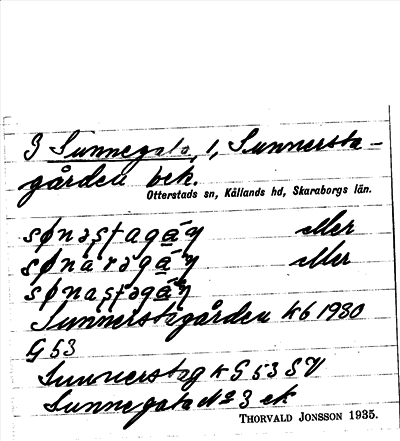 3 Sunnegata, 1, Sunnersta-
gården bek.
Otterstads sn, Kållands hd, Skaraborgs län.
sønəʂtagá̱ɳ eller
sønarəgá̱ɳ eller
sønaʂtəgá̱ɳ
Sunnerstagården k6 1930
G 53
Sunnerstag k G 53 SV
Sunnegata No 3 ek
THORVALD JONSSON 1935.